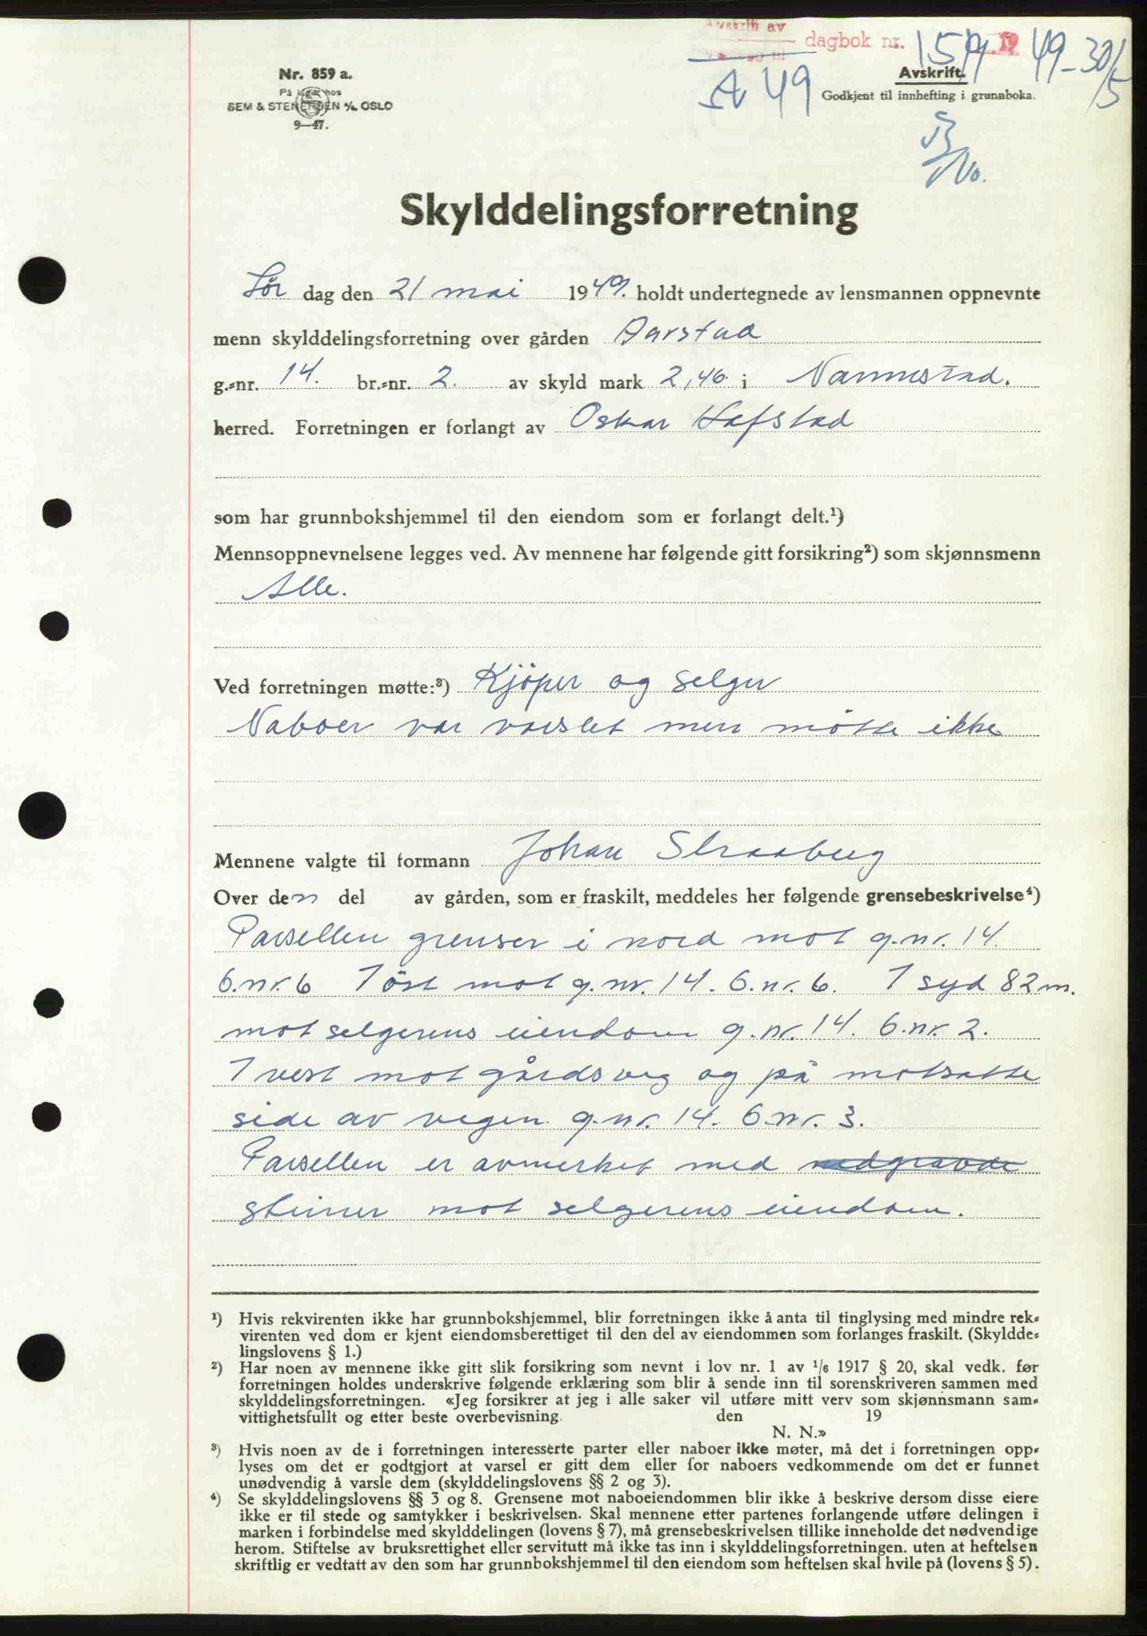 Avskrift av
dagbok nr. 1571 19 49-30/5
A 49
Nr. 859 a.
På lager hos
SEM & STENERSEN A/S OSLO
9-47.
Avskrift.
Godkjent til innhefting i grunnboka.
No.
Skylddelingsforretning
Lør dag den 21 mai 1949. holdt undertegnede av lensmannen oppnevnte
menn skylddelingsforretning over gården Aarstad
g.-nr. 14. br.-nr. 2. av skyld mark 2,46 i Nannestad.
herred. Forretningen er forlangt av Oskar Hafstad
som har grunnbokshjemmel til den eiendom som er forlangt delt.¹)
Mennsoppnevnelsene legges ved. Av mennene har følgende gitt forsikring²) som skjønnsmenn
Alle.
Ved forretningen møtte:³) Kjöper og selger
Naboer var varslet men mötte ikke
Mennene valgte til formann Johan Straaberg
Over den del av gården, som er fraskilt, meddeles her følgende grensebeskrivelse⁴)
Parsellen grenser i nord mot g.nr. 14.
b.nr. 6 I öst mot g.nr. 14. b.nr. 6. I syd 82 m.
mot selgerens eiendom g.nr. 14. b.nr. 2.
I vest mot gårdsveg og på motsatte
side av vegen g.nr. 14. b.nr. 3.
Parsellen er avmerket med nedgravde
steiner mot selgerens eiendom.
¹) Hvis rekvirenten ikke har grunnbokshjemmel, blir forretningen ikke å anta til tinglysing med mindre rek-
virenten ved dom er kjent eiendomsberettiget til den del av eiendommen som forlanges fraskilt. (Skyldde-
lingslovens § 1.)
²) Har noen av mennene ikke gitt slik forsikring som nevnt i lov nr. 1 av ¹/₆ 1917 § 20, skal vedk. før
forretningen holdes underskrive følgende erklæring som blir å sende inn til sorenskriveren sammen med
skylddelingsforretningen. «Jeg forsikrer at jeg i alle saker vil utføre mitt verv som skjønnsmann sam-
vittighetsfullt og etter beste overbevisning. den 19
N. N.»
³) Hvis noen av de i forretningen interesserte parter eller naboer ikke møter, må det i forretningen opp-
lyses om det er godtgjort at varsel er gitt dem eller for naboers vedkommende om det er funnet
unødvendig å varsle dem (skylddelingslovens §§ 2 og 3).
⁴) Se skylddelingslovens §§ 3 og 8. Grensene mot naboeiendommen blir ikke å beskrive dersom disse eiere
ikke er til stede og samtykker i beskrivelsen. Skal mennene etter partenes forlangende utføre delingen i
marken i forbindelse med skylddelingen (lovens § 7), må grensebeskrivelsen tillike inneholde det nødvendige
herom. Stiftelse av bruksrettighet eller servitutt må ikke tas inn i skylddelingsforretningen. uten at heftelsen
skriftlig er vedtatt av den som har grunnbokshjemmel til den eiendom som heftelsen skal hvile på (lovens § 5).